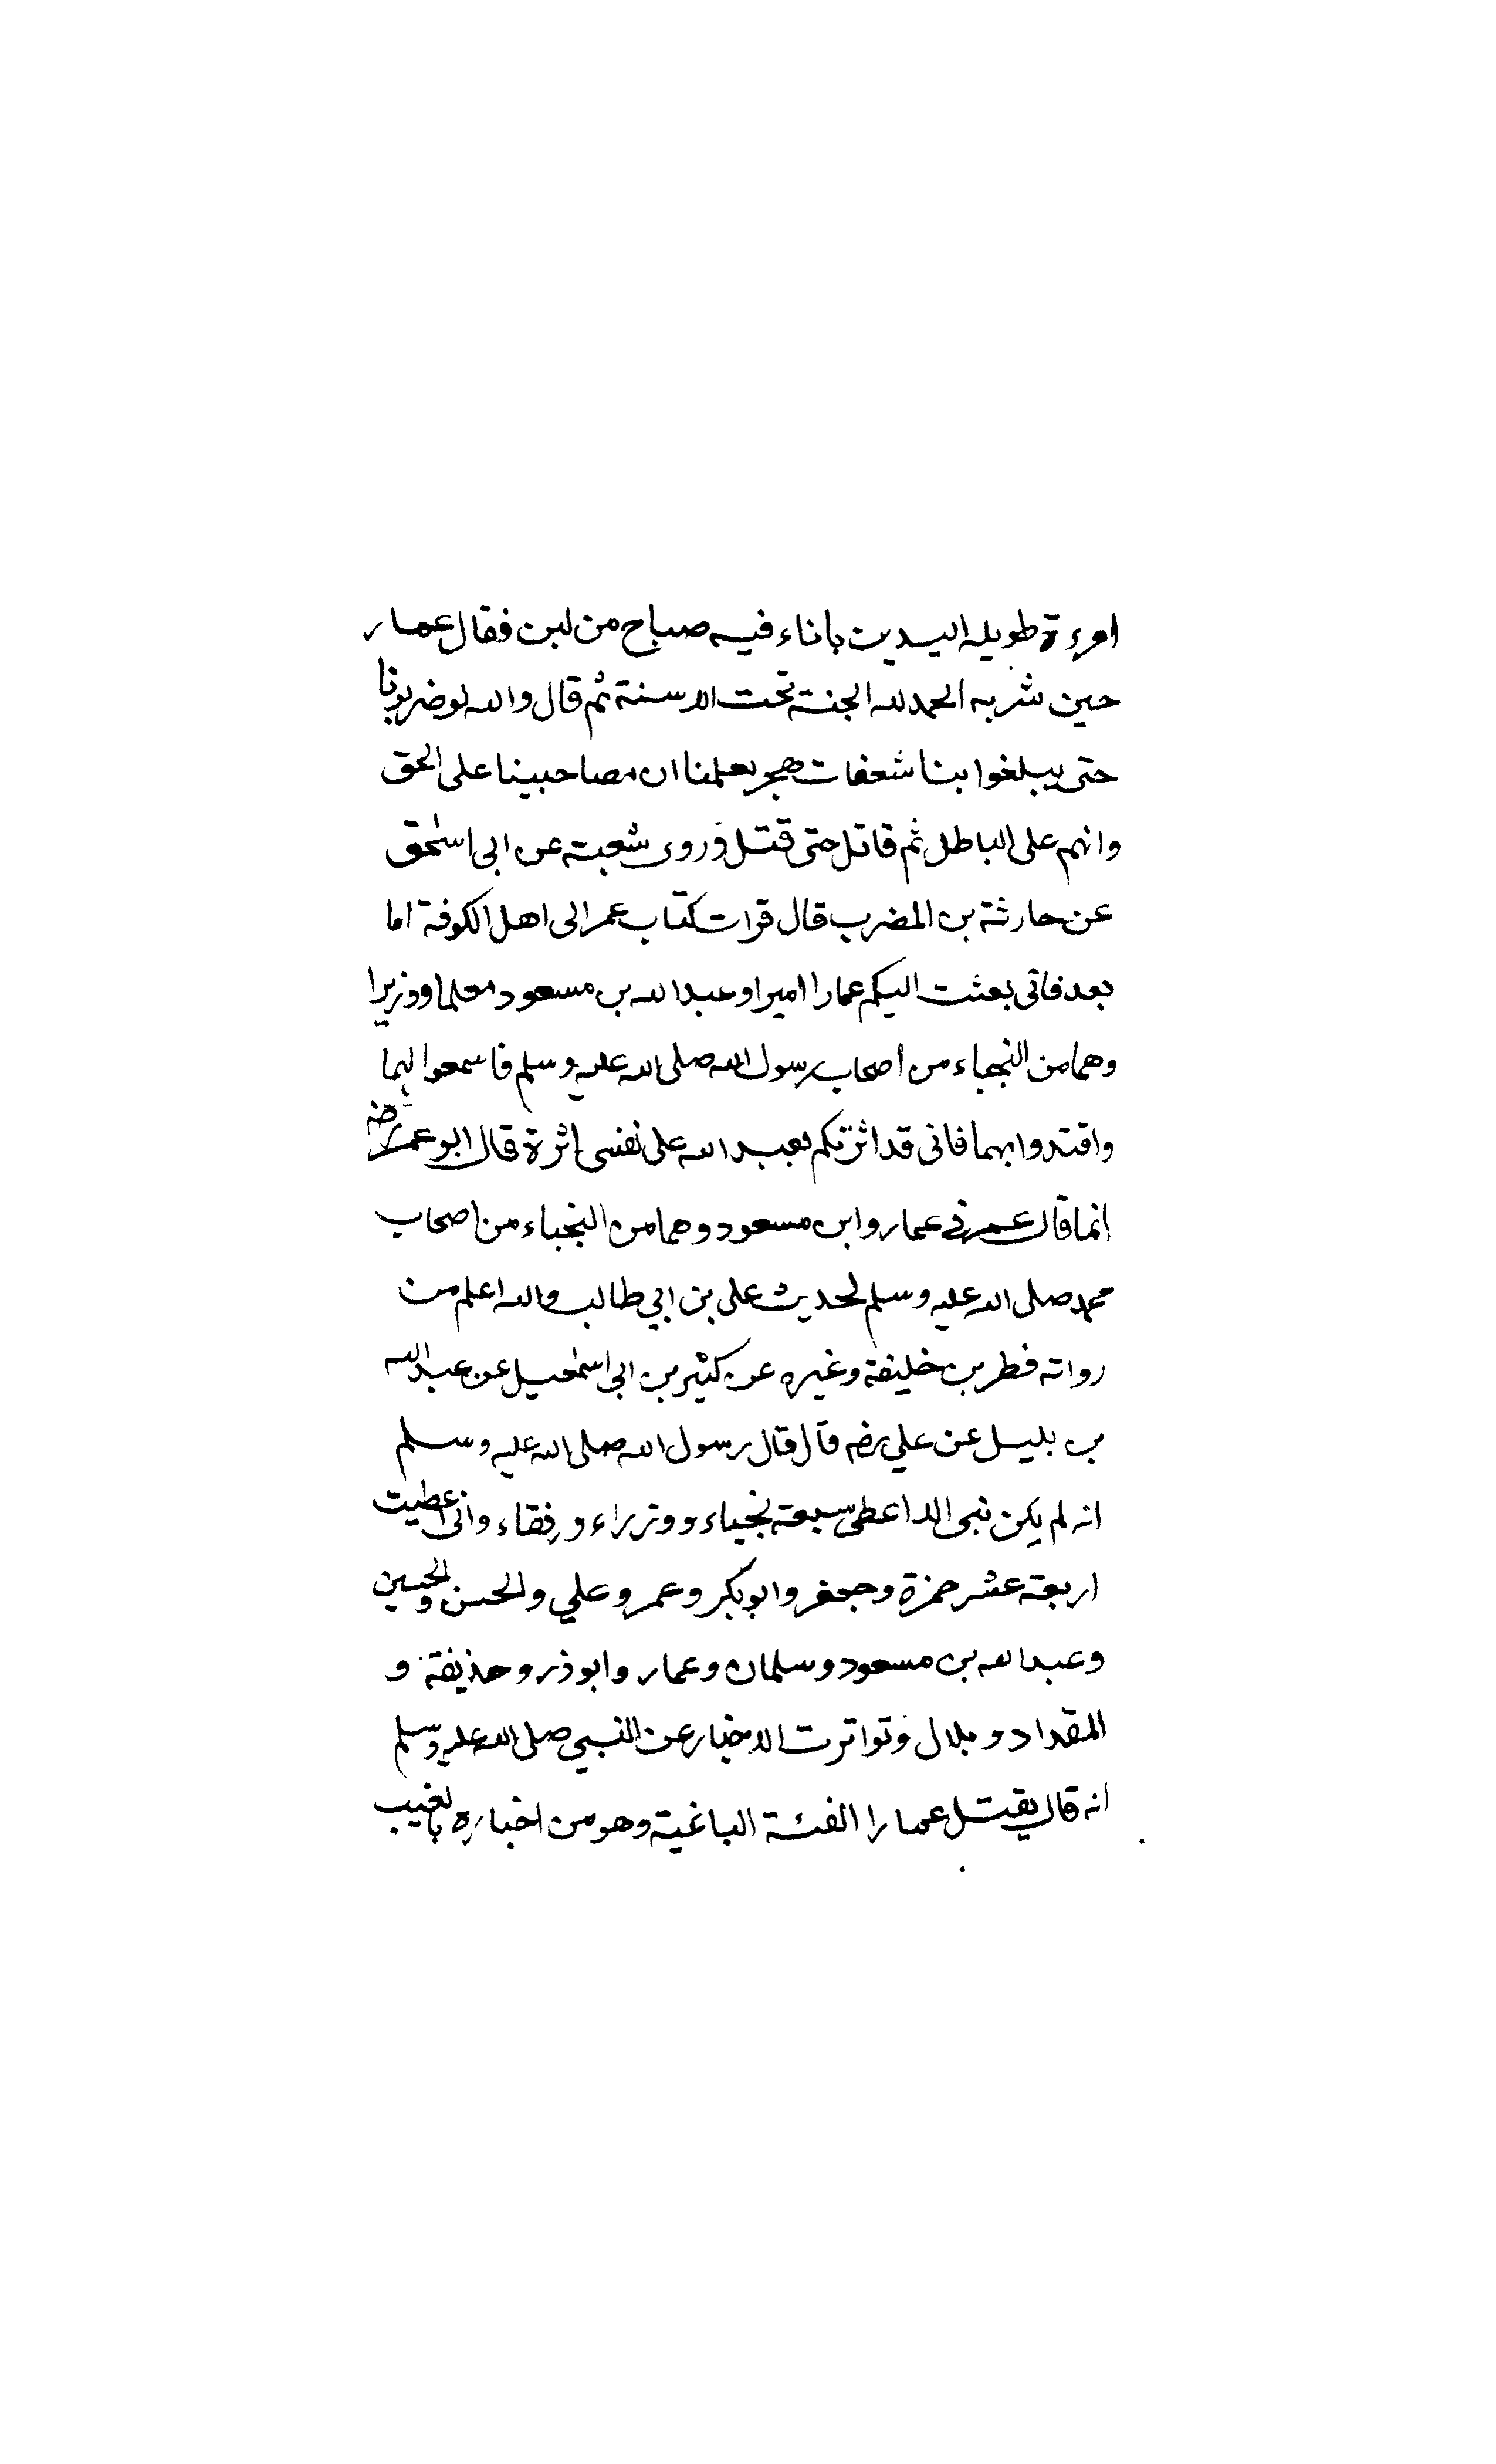 امرءة طويله اليدين باناء فيه صباح من لبن فقال عمار
حين شربه الحمد لله الجنة تحت الاسنة ثم قال والله لو ضربونا
حتى يبلغوا بنا شعفات هجر لعلمنا ان مصاحبينا على الحق
وانهم على الباطل ثم قاتل حتى قتل وروى شعبة عن ابى اسحٰق
عن حارثة بن المضرب قال قرات كتاب عمر الى اهل الكوفة اما
بعد فانى بعثت اليكم عمارا اميرا وعبد الله بن مسعود معلما ووزيرا
وهما من النجباء من أصحاب رسول الله صلى الله عليه وسلم فاسمعوا لهما
واقتدوا بهما فانى قد اثرتكم بعبد الله على نفسى إثرة قال ابو عمر رضه
انما قال عمر في عمار وابن مسعود وهما من النجباء من اصحاب
محمد صلى الله عليه وسلم لحديث على بن ابي طالب والله اعلم من
رواته فطر بن خليفة وغيره عن كثير بن ابى اسمٰعيل عن عبد الله
بن بليل عن علي رضه قال قال رسول الله صلى الله عليه وسلم
انه لم يكن نبى الا اعطى سبعة نجباء ووزراء ورفقاء وانى اعطيت
اربعة عشر حمزة وجعفر وابو بكر وعمر وعلي والحسن والحسين
وعبد الله بن مسعود وسلمان وعمار وابو ذر وحذيفة و
المقداد وبلال وتواترت الاخبار عن النبي صلى الله عليه وسلم
انه قال يقتل عمارا الفئة الباغية وهو من اخباره بالغيب